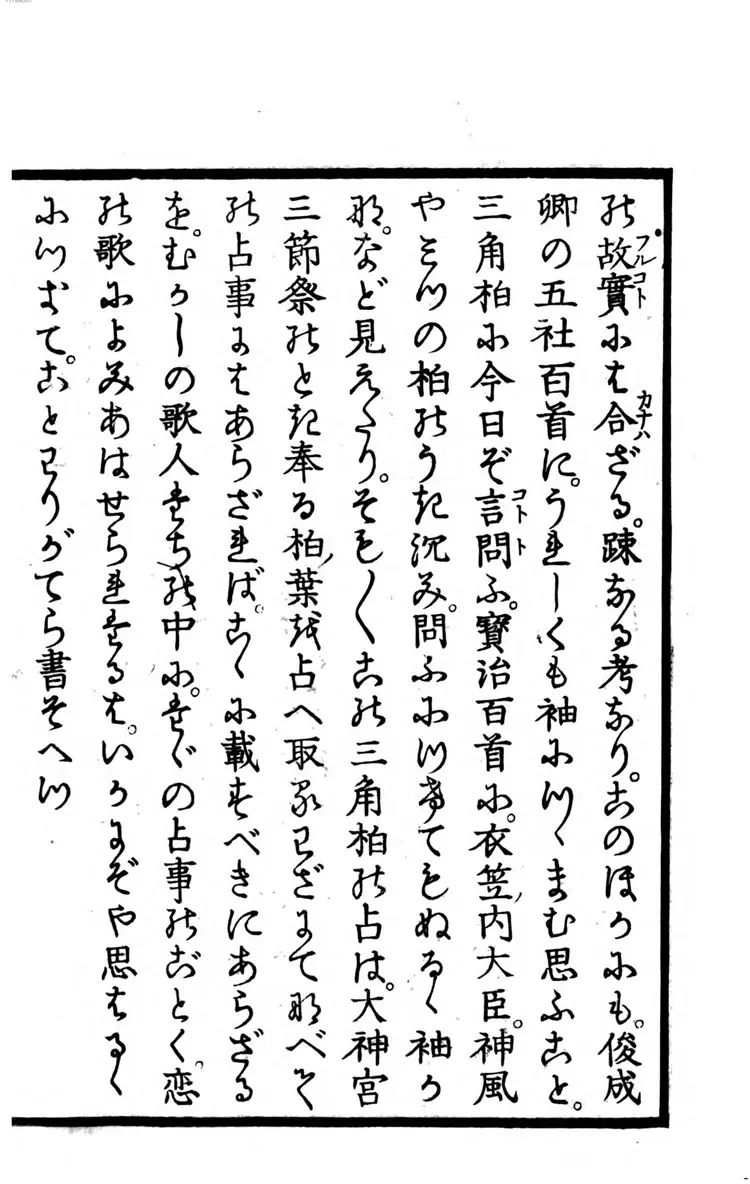 の故實にハ合ざる。疎なる考なり。このほかにも。俊成
卿の五社百首に。うれしくも袖につゝまむ思ふこと。
三角柏に今日ぞ言問ふ。寳治百首に。衣笠内大臣。神風
やみつの柏のうき沈み。問ふにつけてもぬるゝ袖か
な。など見えたり。そも〳〵この三角柏の占は。大神宮
三節祭のとき奉る柏葉を占へ取るわざにてなべて
の占事にはあらざれば。こゝに載すべきにあらざる
を。むかしの歌人たちの中に。たゞの占事のごとく。恋
の歌によみあはせられたるは。いかにぞや思はるゝ
につきて。ことわりがてら書そへつ
フルコト
カナハ
コトト